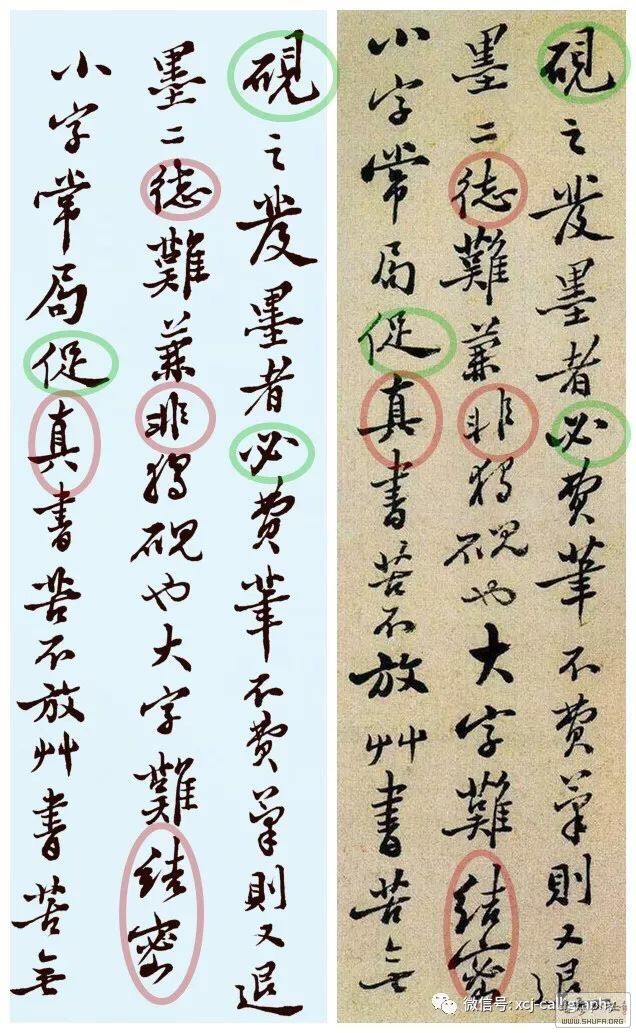 硯之發墨者必費筆不費筆則又退
墨二德難兼非獨硯也大字難結密
小字常局促真書苦不放艸書苦無
硯之發墨者必費筆不費筆則又退
墨二德難兼非獨硯也大字難結密
小字常局促真書苦不放艸書苦無
微信号: xcj-calligraph
WWW.SHUFA.ORG